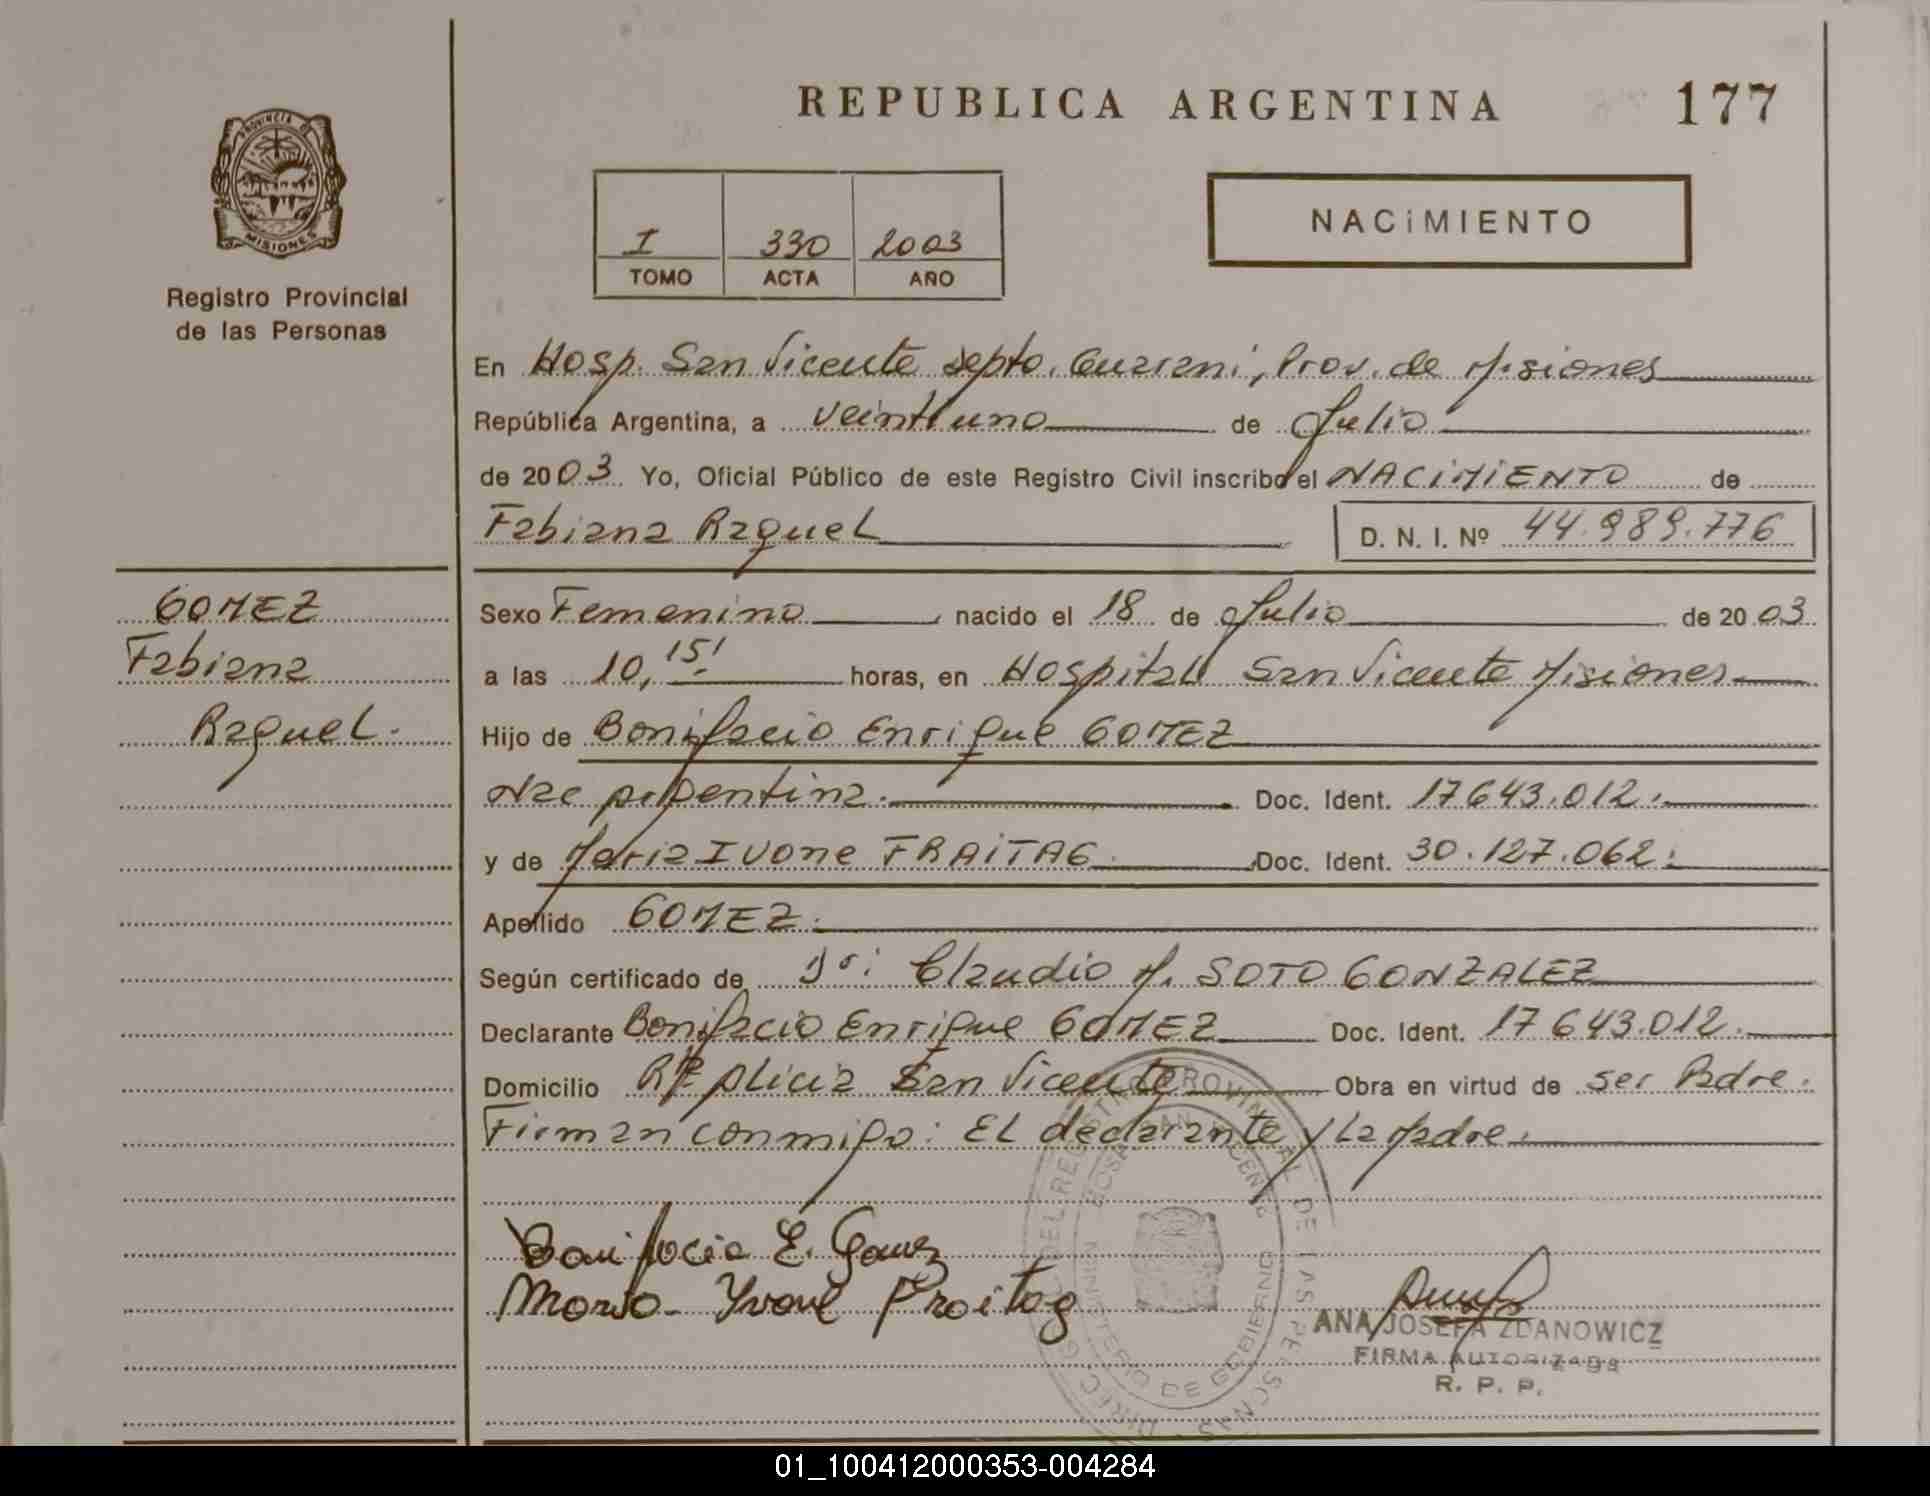 REPUBLICA ARGENTINA
177
PROVINCIA DE
MISIONES
Registro Provincial
de las Personas
I 330 2003
TOMO ACTA AÑO
NACiMIENTO
En Hosp. San Vicente Depto. Guarani, Prov. de Misiones
República Argentina, a veintiuno de Julio
de 2003 Yo, Oficial Público de este Registro Civil inscribo el NACiMiENTO de
Fabiana Raquel
D. N. I. Nº 44.989.776
GOMEZ
Fabiana
Raquel.
Sexo Femenino nacido el 18 de Julio de 2003
a las 10,15' horas, en Hospital San Vicente Misiones
Hijo de Bonifacio Enrique GOMEZ
Nac Argentina. Doc. Ident. 17643.012.
y de Maria Ivone FRAiTAG Doc. Ident. 30.127.062.
Apellido GOMEZ.
Según certificado de Dr: Claudio M. SOTO GONZALEZ
Declarante Bonifacio Enrique GOMEZ Doc. Ident. 17643.012.
Domicilio Alicia San Vicente Obra en virtud de ser Padre.
Firman conmigo: El declarante y La Madre.
Bonifacio E. Gomez
Maria Yvone Fraitag
ANA JOSEFA ZDANOWICZ
FIRMA AUTORIZADA
R. P. P.
REGISTRO PROVINCIAL DE LAS PERSONAS
MINISTERIO DE GOBIERNO
01_100412000353-004284